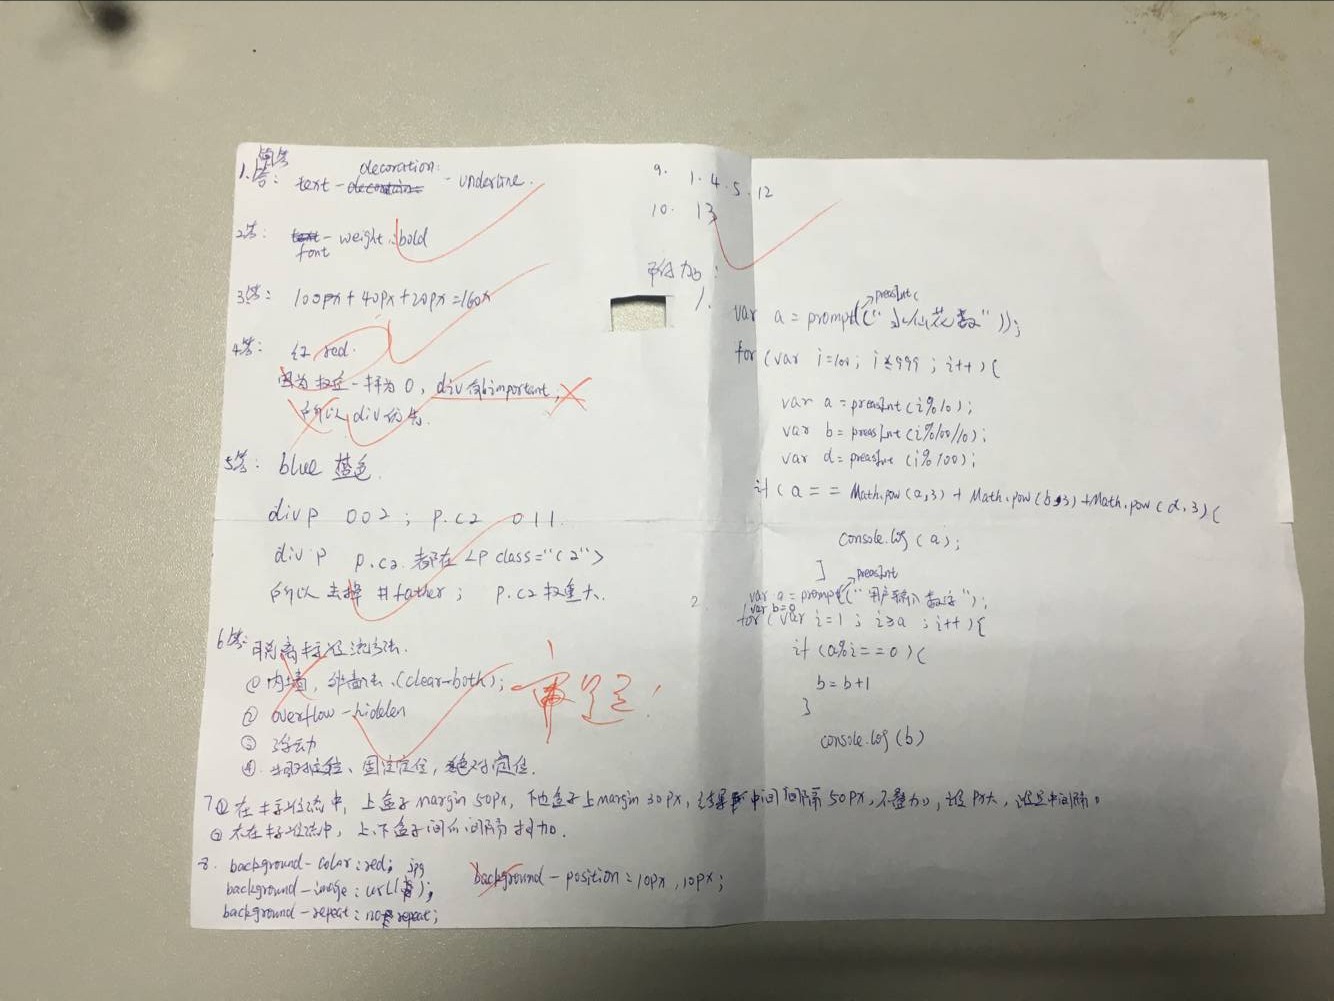 简答
1.答: text-decoration: -underline.
2答: font-weight:bold
3答: 100px+40px+20px=160x
4答: 红 red.
因为权重一样为0, div有important,
所以div优先.
5答: blue 蓝色.
div p 002; p.c2 011.
div p p.c2 都在<p class="c2">
所以去掉 #father; p.c2权重大.
6答: 脱离标准流方法.
① 内墙, 外墙法.(clear-both);
② overflow-hidden
③ 浮动
④ 相对定位、固定定位, 绝对定位.
审题!
7① 在标准流中, 上盒子margin 50px, 下边盒子上margin 30px, 结果中间间隔50px, 不叠加, 谁px大, 谁是中间隔。
② 不在标准流中, 上、下盒子间的间隔相加.
8. background-color:red;
background-image:url(.jpg);
background-repeat:no repeat;
background-position:10px,10px;
9. 1.4.5.12
10. 13
附加:
1. var a=preasInt(prompt("水仙花数"));
for(var i=100; i≤999; i++){
var a=preasInt(i%10);
var b=preasInt(i%100/10);
var d=preasInt(i%100);
if(a==Math.pow(a,3)+Math.pow(b,3)+Math.pow(d,3){
console.log(a);
}
2. var a=preasInt prompt("用户输入数字");
var b=0
for(var i=1; i≥a; i++){
if(a%i==0){
b=b+1
}
console.log(b)